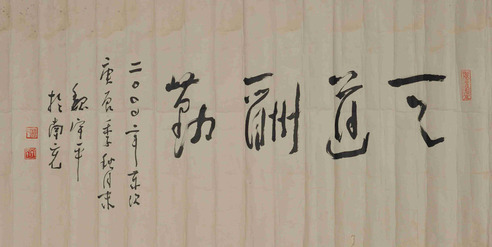 天道酬勤
二〇〇〇年岁次
庚辰季秋月末
魏宇平
於南充